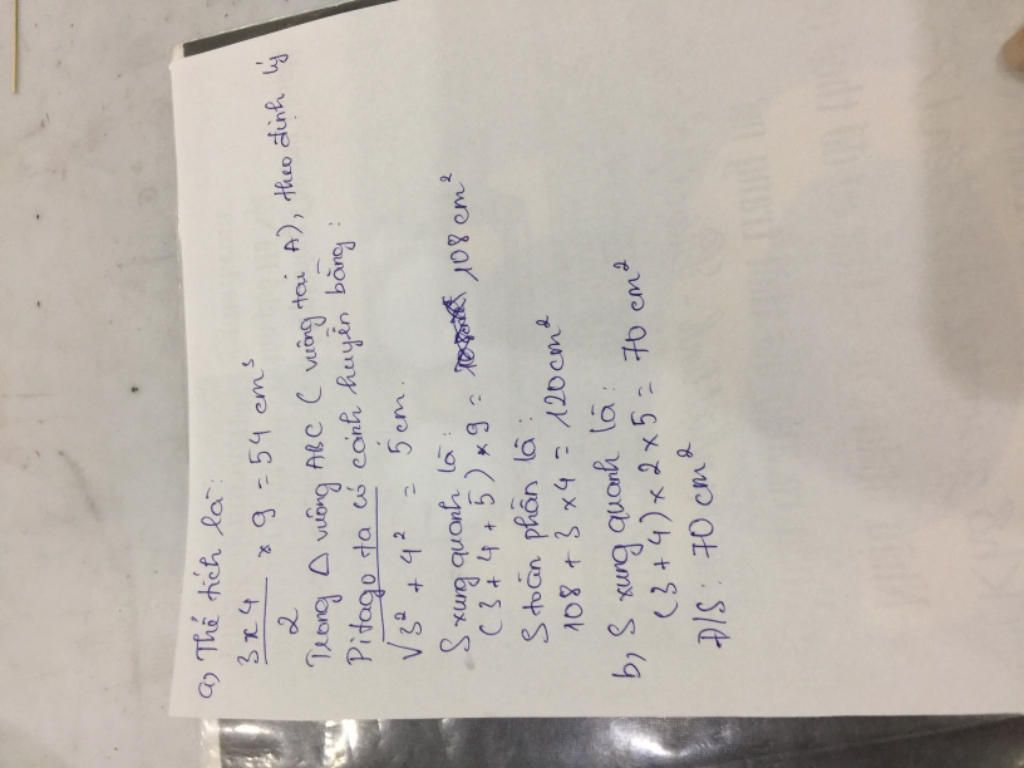 a, Thể tích là:
3 x 4
2
x 9 = 54 cm³
Trong Δ vuông ABC ( vuông tại A), theo định lý
Pitago ta có cánh huyền bằng:
√3² + 4² = 5 cm.
S xung quanh là:
( 3 + 4 + 5 ) x 9 = 108 cm²
S toàn phần là:
108 + 3 x 4 = 120 cm²
b, S xung quanh là:
( 3 + 4) x 2 x 5 = 70 cm²
Đ/S: 70 cm²